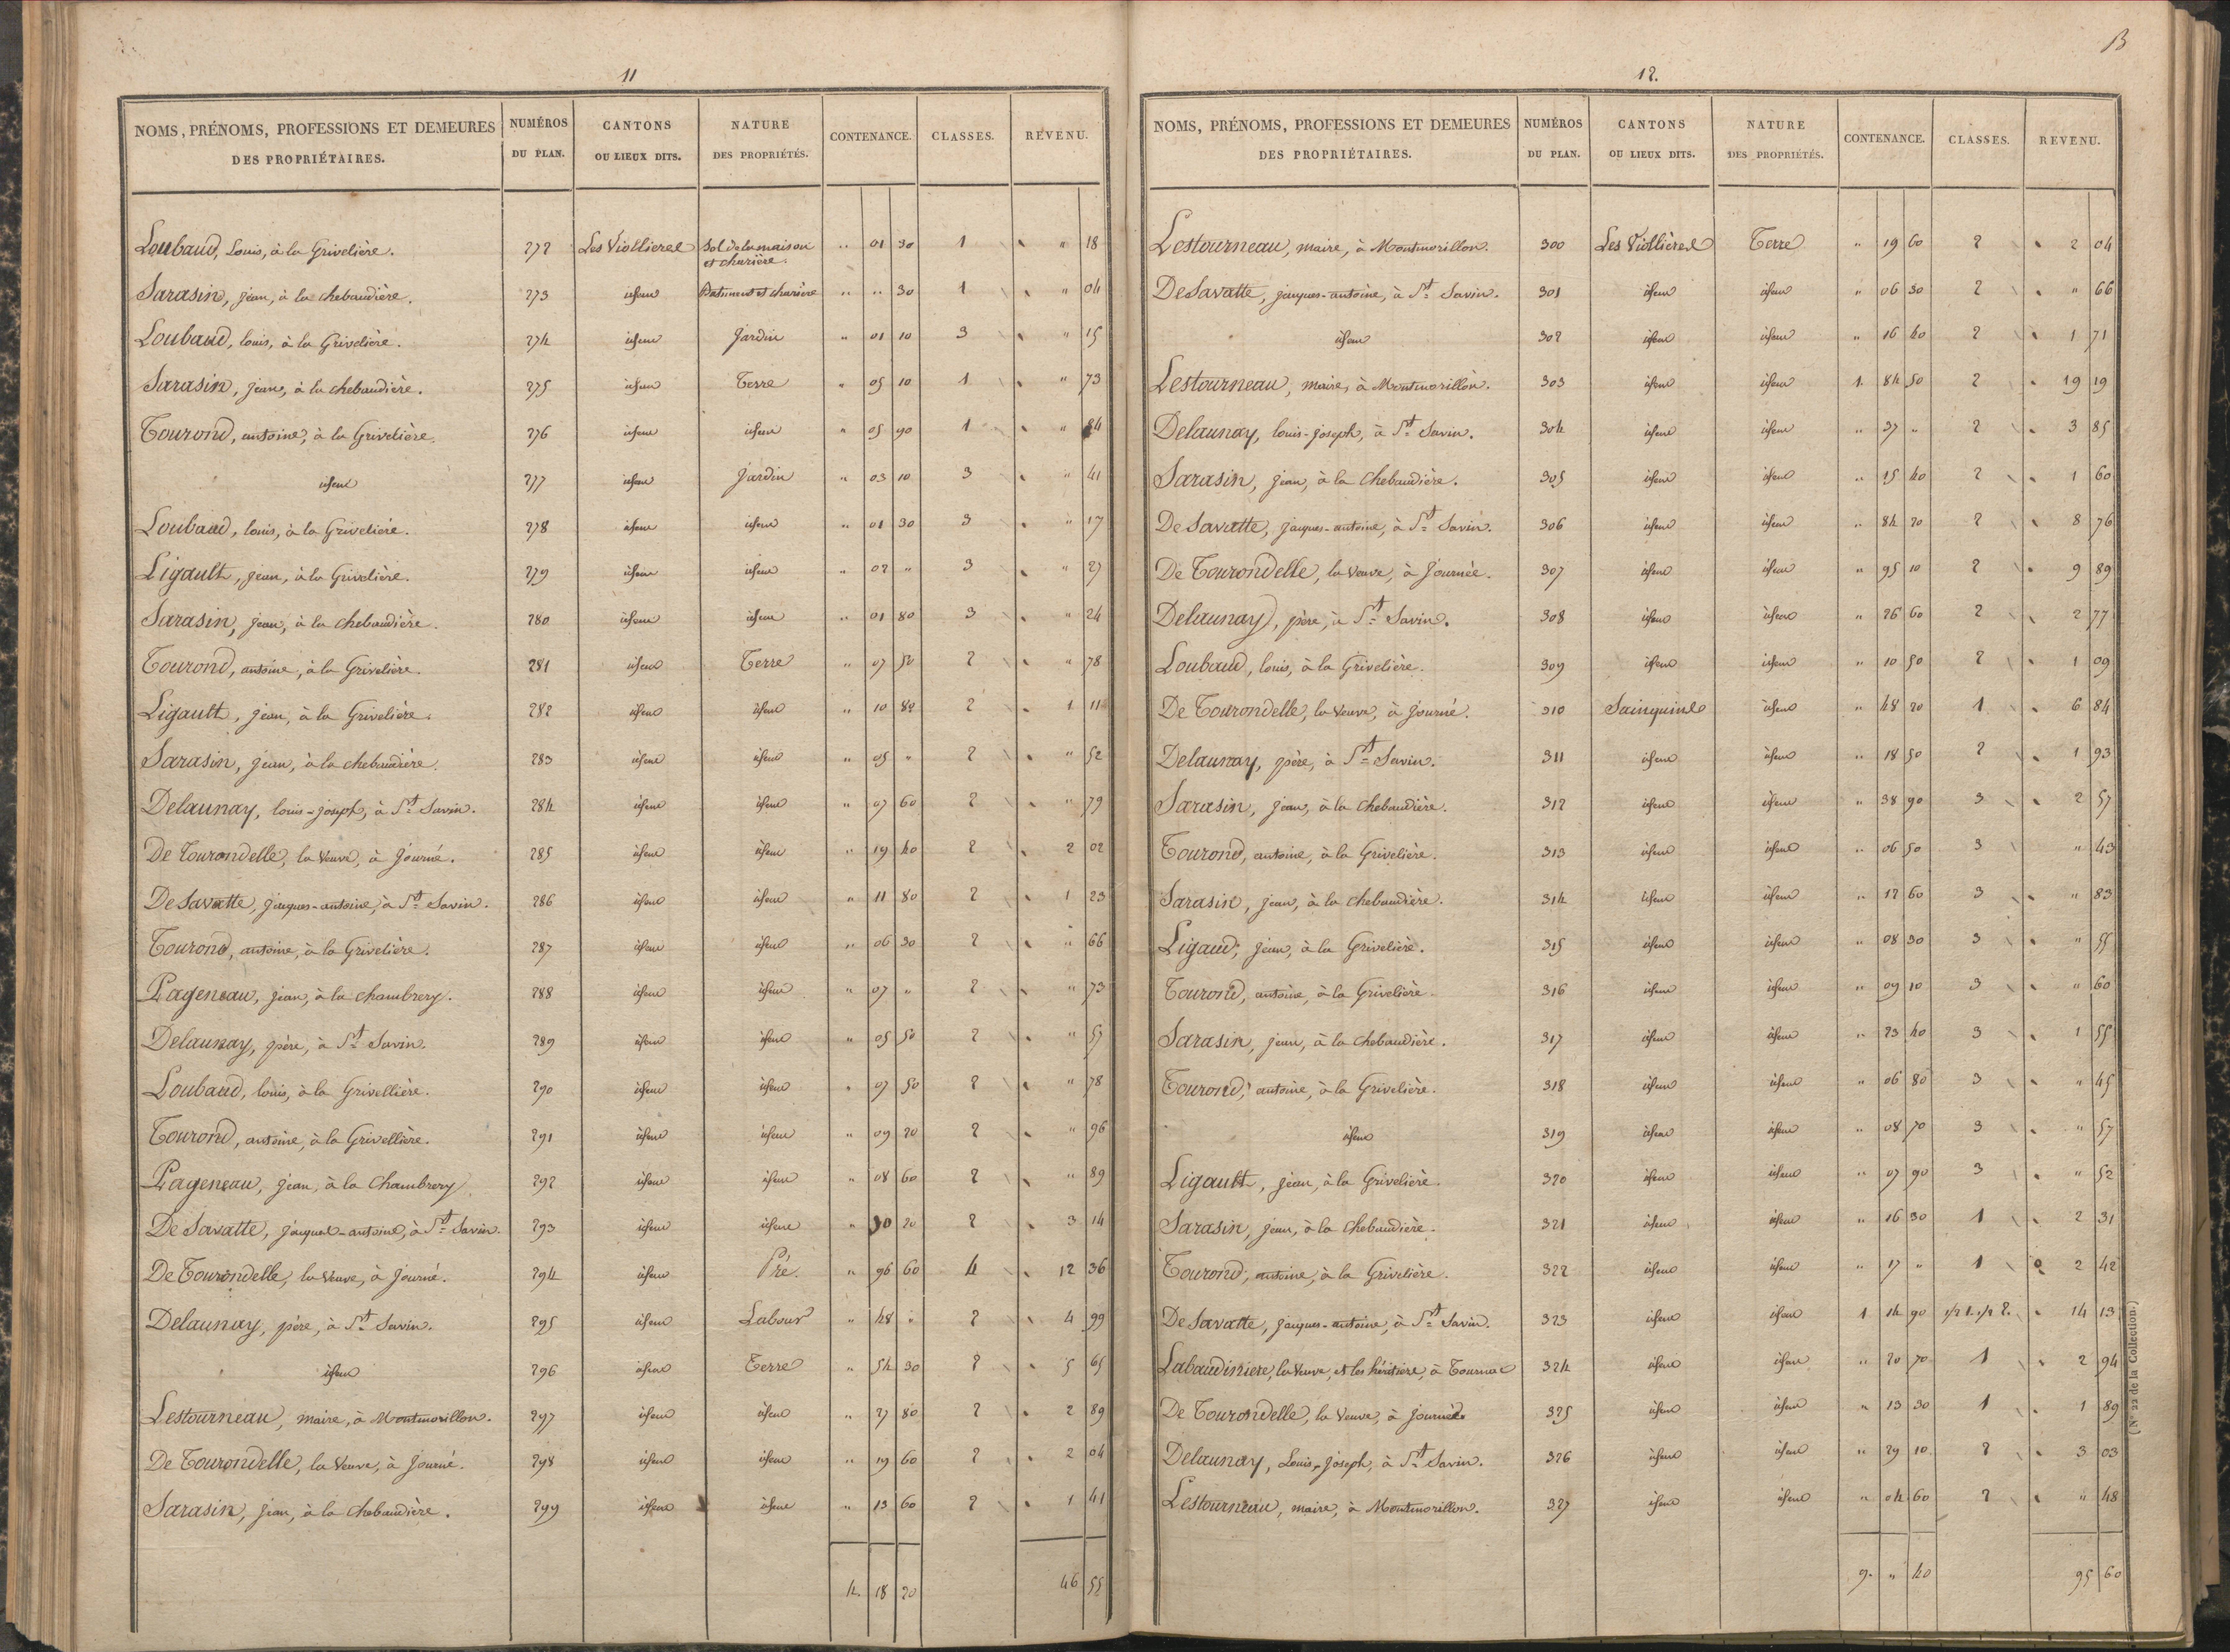 11
NOMS, PRÉNOMS, PROFESSIONS ET DEMEURES DES PROPRIÉTAIRES. NUMÉROS DU PLAN. CANTONS OU LIEUX DITS. NATURE DES PROPRIÉTÉS. CONTENANCE. CLASSES. REVENU.
Loubaud, Louis, à la Grivelière. 272 Les Viollieres Sol de la maison et charière. " 01 30 1 " 18
Sarasin, jean, à la chebaudière. 273 idem Batiment et charière " " 30 1 " 04
Loubaud, louis, à la Grivelière. 274 idem Jardin " 01 10 3 " 15
Sarasin, jean, à la chebaudière. 275 idem Terre " 05 10 1 " 73
Tourond, antoine, à la Grivelière. 276 idem idem " 05 90 1 " 84
idem 277 idem Jardin " 03 10 3 " 41
Loubaud, louis, à la Grivelière. 278 idem idem " 01 30 3 " 17
Ligault, jean, à la Grivelière. 279 idem idem " 02 " 3 " 27
Sarasin, jean, à la chebaudière. 280 idem idem " 01 80 3 " 24
Tourond, antoine, à la Grivelière. 281 idem Terre " 07 50 2 " 78
Ligault, jean, à la Grivelière. 282 idem idem " 10 82 2 1 11
Sarasin, jean, à la chebaudière. 283 idem idem " 05 " 2 " 52
Delaunay, louis-joseph, à St Savin. 284 idem idem " 07 60 2 " 79
De Tourondelle, la Veuve, à Journé. 285 idem idem " 19 40 2 2 02
De Savatte, jaques-antoine, à St Savin. 286 idem idem " 11 80 2 1 23
Tourond, antoine, à la Grivelière. 287 idem idem " 06 30 2 " 66
Pageneau, jean, à la chambrery. 288 idem idem " 07 " 2 " 73
Delaunay, père, à St Savin. 289 idem idem " 05 50 2 " 57
Loubaud, louis, à la Grivellière. 290 idem idem " 07 50 2 " 78
Tourond, antoine, à la Grivellière. 291 idem idem " 09 20 2 " 96
Pageneau, jean, à la Chambrery. 292 idem idem " 08 60 2 " 89
De Savatte, jaques-antoine, à St Savin. 293 idem idem " 30 20 2 3 14
De Tourondelle, la Veuve, à Journé. 294 idem Pré. " 96 60 4 12 36
Delaunay, père, à St Savin. 295 idem Labour " 48 " 2 4 99
idem 296 idem Terre " 54 30 2 5 65
Lestourneau, maire, à Montmorillon. 297 idem idem " 27 80 2 2 89
De Tourondelle, la Veuve, à Journé. 298 idem idem " 19 60 2 2 04
Sarasin, jean, à la chebaudière. 299 idem idem " 13 60 2 1 41
4. 18 20 46 55
12.
NOMS, PRÉNOMS, PROFESSIONS ET DEMEURES DES PROPRIÉTAIRES. NUMÉROS DU PLAN. CANTONS OU LIEUX DITS. NATURE DES PROPRIÉTÉS. CONTENANCE. CLASSES. REVENU.
Lestourneau, maire, à Montmorillon. 300 Les Viollières Terre " 19 60 2 2 04
De Savatte, jaques-antoine, à St Savin. 301 idem idem " 06 30 2 " 66
idem 302 idem idem " 16 40 2 1 71
Lestourneau, maire, à Montmorillon. 303 idem idem 1. 84 50 2 19 19
Delaunay, louis-joseph, à St Savin. 304 idem idem " 37 " 2 3 85
Sarasin, jean, à la Chebaudière. 305 idem idem " 15 40 2 1 60
De Savatte, jaques-antoine, à St Savin. 306 idem idem " 84 20 2 8 76
De Tourondelle, la Veuve, à Journée. 307 idem idem " 95 10 2 9 89
Delaunay, père, à St Savin. 308 idem idem " 26 60 2 2 77
Loubaud, louis, à la Grivelière. 309 idem idem " 10 50 2 1 09
De Tourondelle, la Veuve, à Journé. 310 Sainquins idem " 48 20 1 6 84
Delaunay, père, à St Savin. 311 idem idem " 18 50 2 1 93
Sarasin, jean, à la chebaudière. 312 idem idem " 38 90 3 2 57
Tourond, antoine, à la Grivelière. 313 idem idem " 06 50 3 " 43
Sarasin, jean, à la chebaudière. 314 idem idem " 12 60 3 " 83
Ligaud, jean, à la Grivelière. 315 idem idem " 08 30 3 " 55
Tourond, antoine, à la Grivelière. 316 idem idem " 09 10 3 " 60
Sarasin, jean, à la chebaudière. 317 idem idem " 23 40 3 1 55
Tourond, antoine, à la Grivelière. 318 idem idem " 06 80 3 " 45
idem 319 idem idem " 08 70 3 " 57
Ligault, jean, à la Grivelière. 320 idem idem " 07 90 3 " 52
Sarasin, jean, à la Chebaudière. 321 idem idem " 16 30 1 2 31
Tourond, antoine, à la Grivelière. 322 idem idem " 17 " 1 2 42
De Savatte, jaques-antoine, à St Savin. 323 idem idem 1 14 90 1/2 1. 1/2 2. 14 13
Labaudiniere, la Veuve, et les héritiers, à 324 idem idem " 20 70 1 2 94
De Tourondelle, la Veuve, à Journée. 325 idem idem " 13 30 1 1 89
Delaunay, Louis-Joseph, à St Savin. 326 idem idem " 29 10 2 3 03
Lestourneau, maire, à Montmorillon. 327 idem idem " 04 60 2 " 48
9. " 40 95 60
(N° 22 de la Collection.)